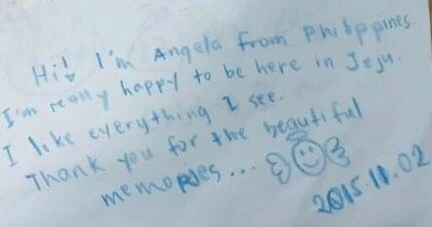 Hi! I'm Angela from Philippines.
I'm really happy to be here in Jeju.
I like everything I see.
Thank you for the beautiful
memories...
2015.11.02